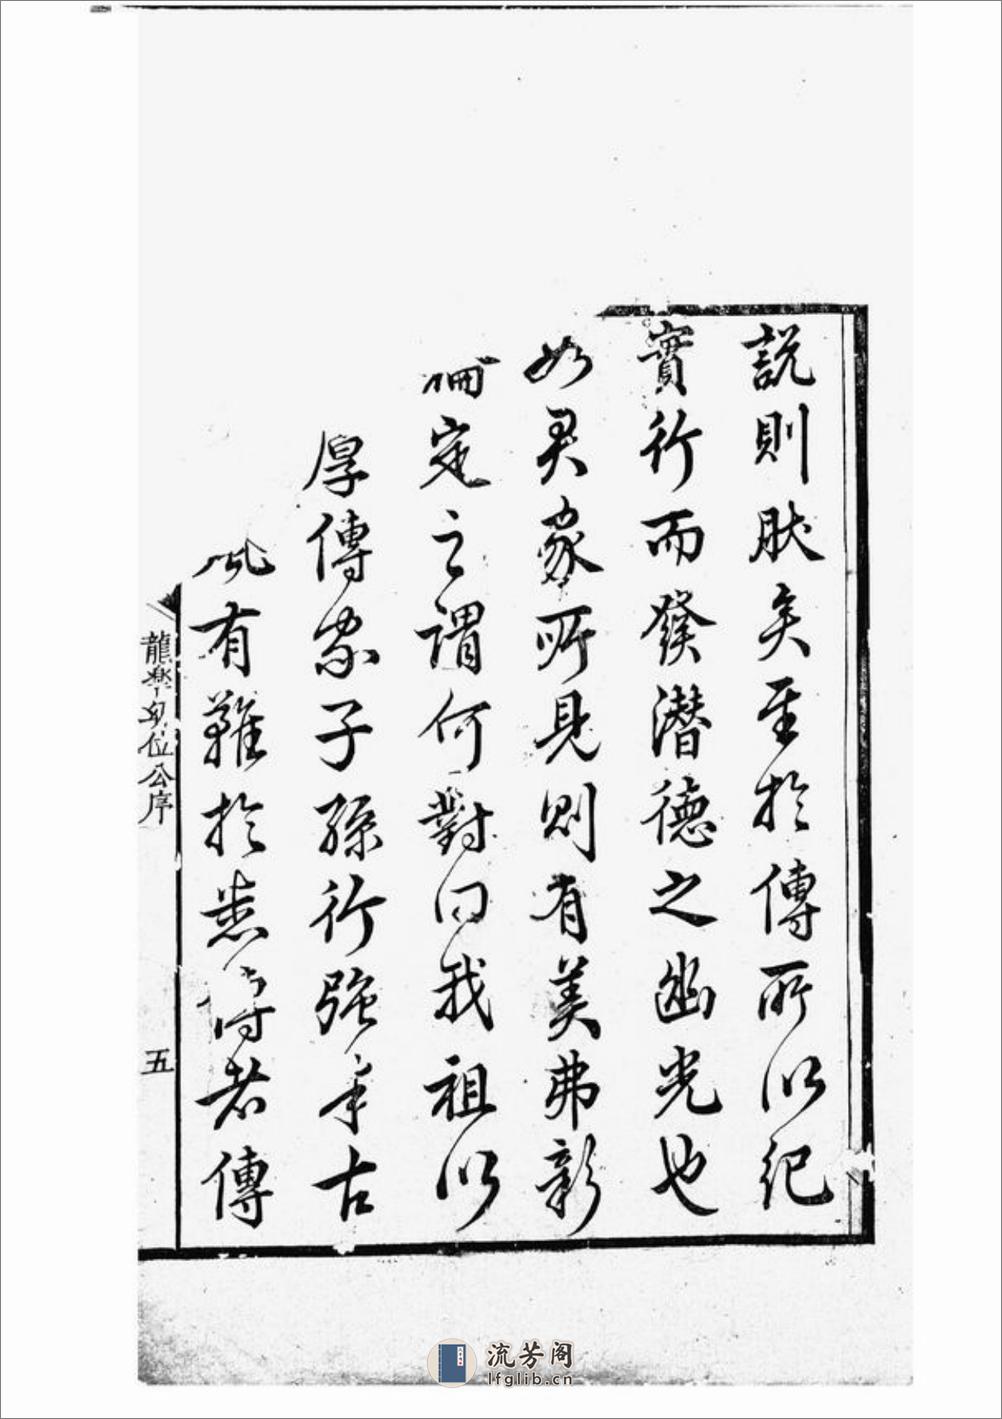 說則肰矣至於傳所以紀
實行而發潛德之幽光也
如君家所見則有美弗彰
定之謂何對曰我祖以
厚傳家子孫行強年古
有難於悉傳者傳
位公序
五
流芳阁
lfglib.cn